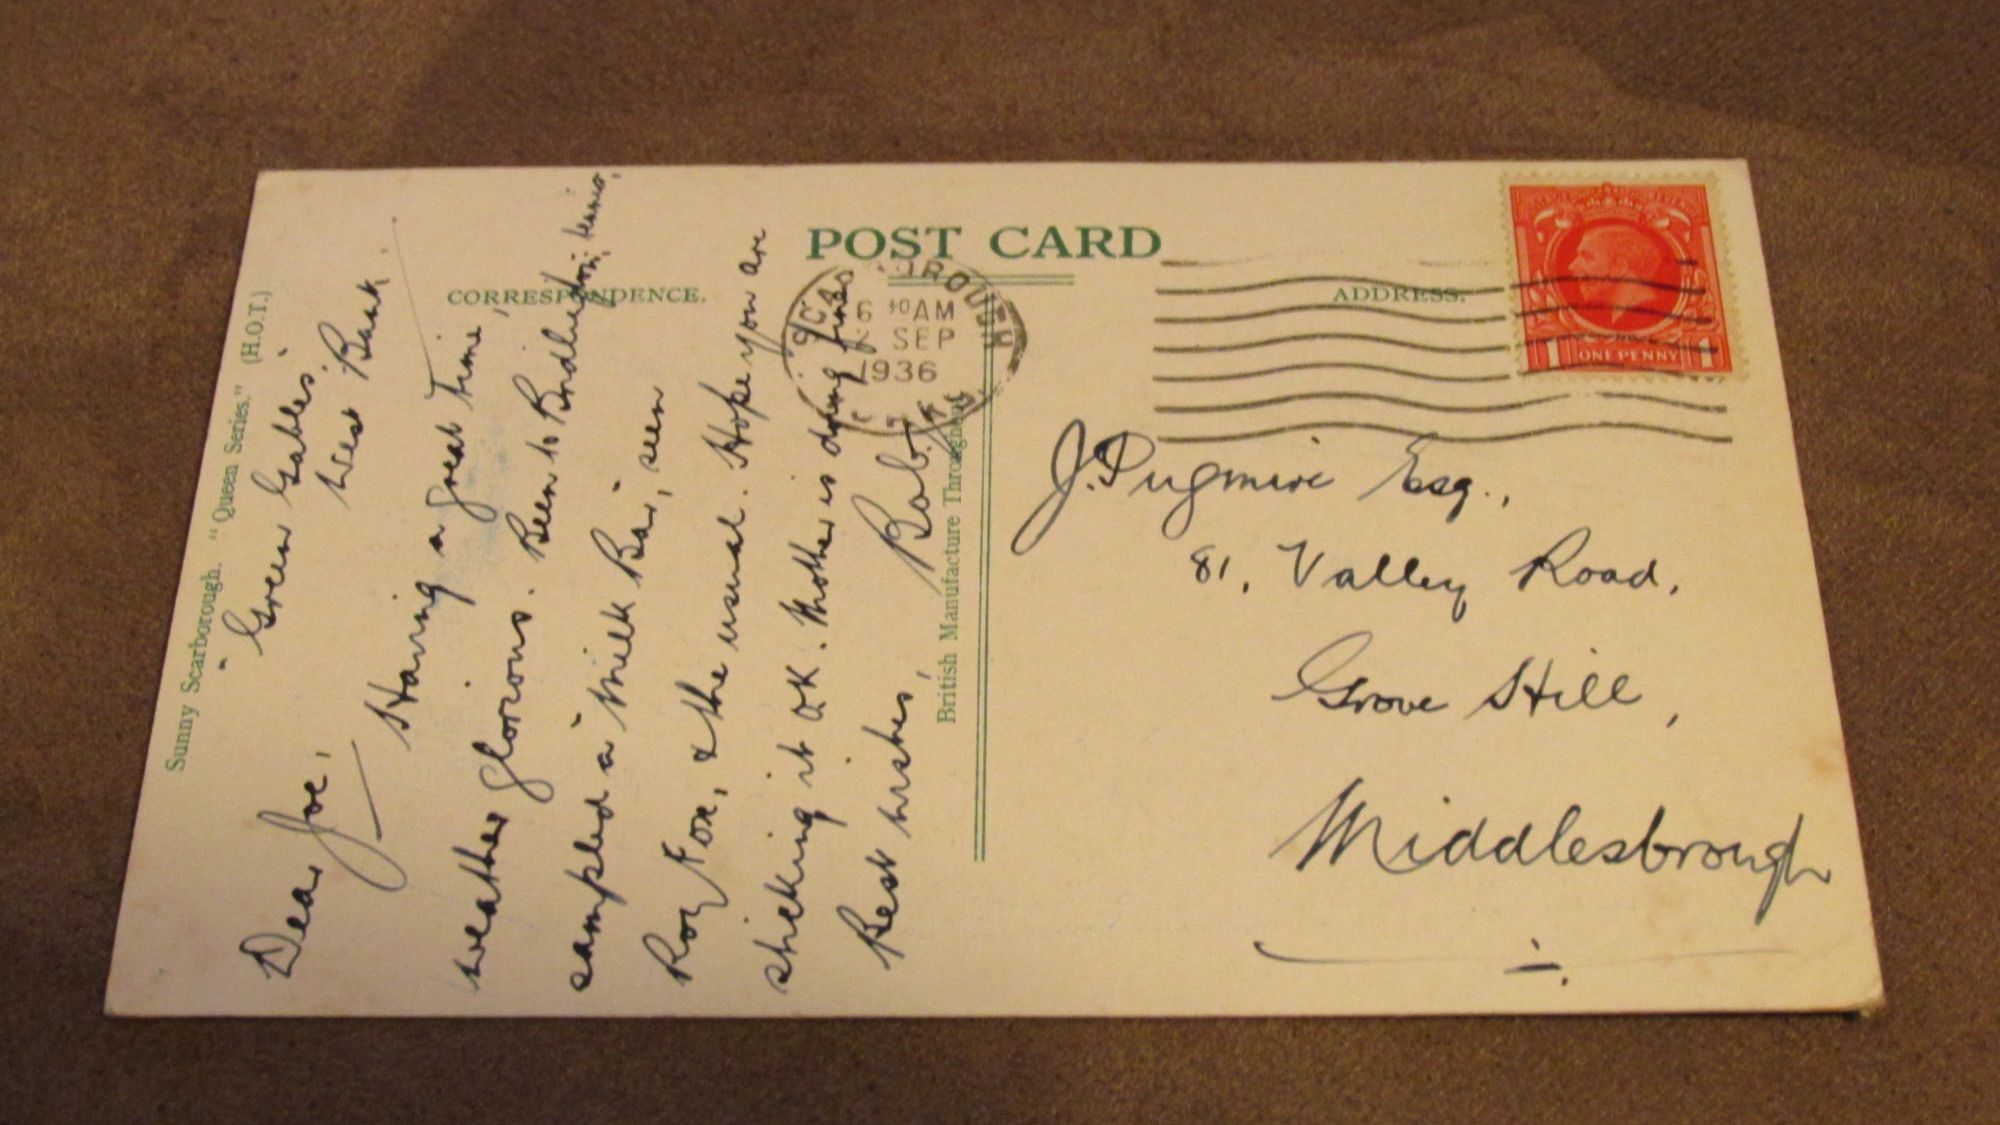 POST CARD
CORRESPONDENCE.
ADDRESS.
Sunny Scarborough. "Queen Series." (H.O.T.)
"Green Gables"
West Bank.
Dear Joe,
Having a great time,
weather glorious. Been to Bridlington, tennis,
sampled a "Milk Bar", seen
Roy Fox, & the usual. Hope you are
sticking it OK. Mother is doing fine.
Best wishes,
Bob.
British Manufacture Throughout
SCARBOROUGH
6 30 AM
SEP
1936
ONE PENNY
1 1
J. Pugmire Esq.,
81, Valley Road,
Grove Hill,
Middlesbrough